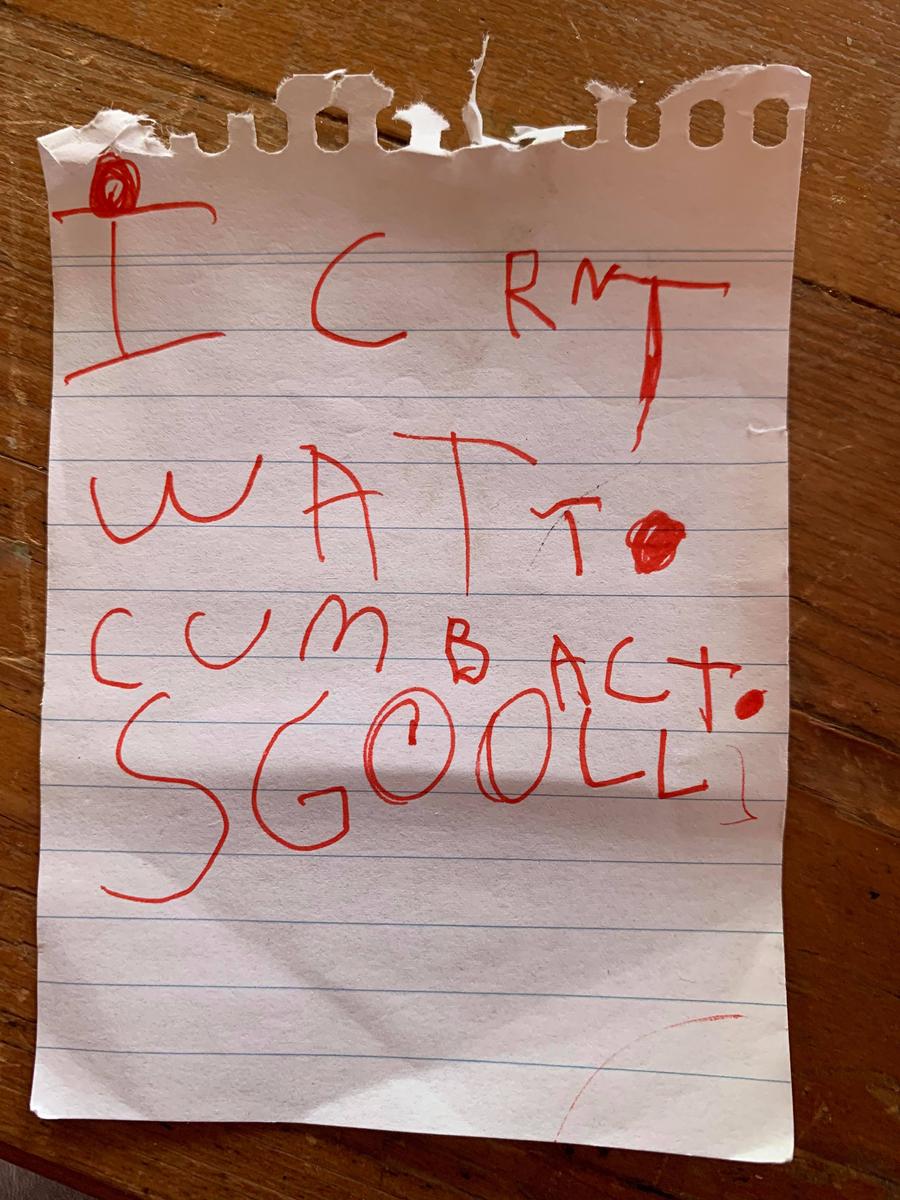 I C RNT
WAT TO
CUM BACT.
SGOOLL